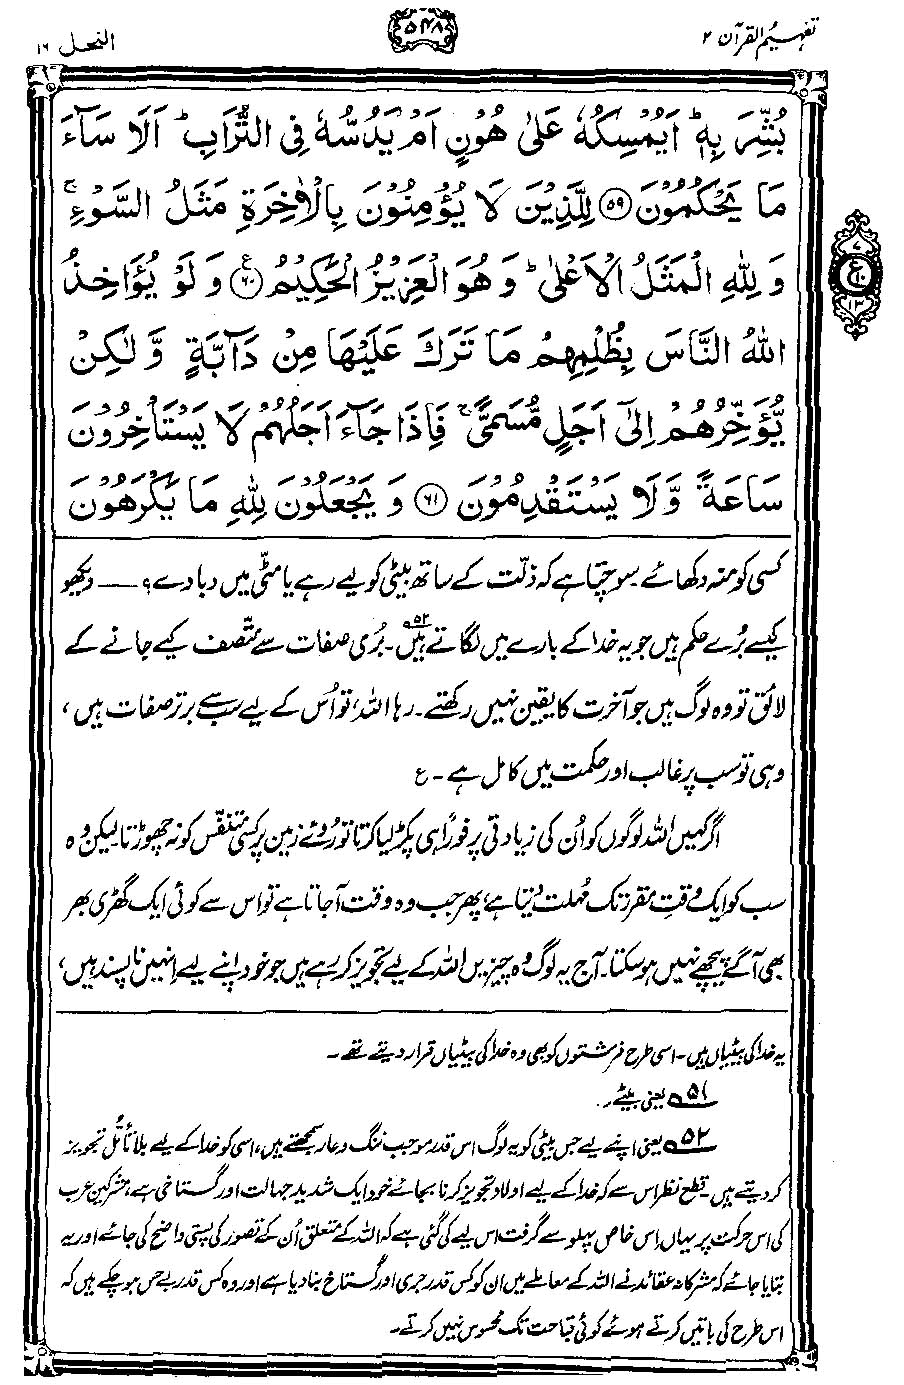 تفہیم القرآن ۲
۵۴۸
النحل ۱۶
بُشِّرَ بِهٖ ؕ اَيُمْسِكُهٗ عَلٰى هُوْنٍ اَمْ يَدُسُّهٗ فِى التُّرَابِ ؕ اَلَا سَآءَ
مَا يَحْكُمُوْنَ ﴿۵۹﴾ لِلَّذِيْنَ لَا يُؤْمِنُوْنَ بِالْاٰخِرَةِ مَثَلُ السَّوْءِ ۚ
وَ لِلّٰهِ الْمَثَلُ الْاَعْلٰى ؕ وَ هُوَ الْعَزِيْزُ الْحَكِيْمُ ﴿۶۰﴾ وَ لَوْ يُؤَاخِذُ
اللّٰهُ النَّاسَ بِظُلْمِهِمْ مَّا تَرَكَ عَلَيْهَا مِنْ دَآبَّةٍ وَّ لٰكِنْ
يُّؤَخِّرُهُمْ اِلٰٓى اَجَلٍ مُّسَمًّى ۚ فَاِذَا جَآءَ اَجَلُهُمْ لَا يَسْتَاْخِرُوْنَ
سَاعَةً وَّ لَا يَسْتَقْدِمُوْنَ ﴿۶۱﴾ وَ يَجْعَلُوْنَ لِلّٰهِ مَا يَكْرَهُوْنَ
کسی کو منہ دکھائے۔ سوچتا ہے کہ ذلّت کے ساتھ بیٹی کو لیے رہے یا مٹی میں دبا دے؟ —— دیکھو
کیسے بُرے حکم ہیں جو یہ خدا کے بارے میں لگاتے ہیں۵۲۔ بُری صفات سے متّصف کیے جانے کے
لائق تو وہ لوگ ہیں جو آخرت کا یقین نہیں رکھتے۔ رہا اللہ، تو اُس کے لیے سب سے برتر صفات ہیں،
وہی تو سب پر غالب اور حکمت میں کامل ہے۔ ع
اگر کہیں اللہ لوگوں کو اُن کی زیادتی پر فوراً ہی پکڑ لیا کرتا تو رُوئے زمین پر کسی متنفّس کو نہ چھوڑتا۔ لیکن وہ
سب کو ایک وقتِ مقرر تک مُہلت دیتا ہے، پھر جب وہ وقت آ جاتا ہے تو اس سے کوئی ایک گھڑی بھر
بھی آگے پیچھے نہیں ہو سکتا۔ آج یہ لوگ وہ چیزیں اللہ کے لیے تجویز کر رہے ہیں جو خود اپنے لیے اِنہیں ناپسند ہیں،
یہ خدا کی بیٹیاں ہیں۔ اسی طرح فرشتوں کو بھی وہ خدا کی بیٹیاں قرار دیتے تھے۔
۵۱ یعنی بیٹے۔
۵۲ یعنی اپنے لیے جس بیٹی کو یہ لوگ اس قدر موجب ننگ و عار سمجھتے ہیں، اسی کو خدا کے لیے بلا تأمّل تجویز
کر دیتے ہیں۔ قطع نظر اس سے کہ خدا کے لیے اولاد تجویز کرنا بجائے خود ایک شدید جہالت اور گستاخی ہے، مشرکین عرب
کی اس حرکت پر یہاں اِس خاص پہلو سے گرفت اس لیے کی گئی ہے کہ اللہ کے متعلق اُن کے تصور کی پستی واضح کی جائے اور یہ
بتایا جائے کہ مشرکانہ عقائد نے اللہ کے معاملے میں ان کو کس قدر جری اور گستاخ بنا دیا ہے اور وہ کس قدر بے حس ہو چکے ہیں کہ
اس طرح کی باتیں کرتے ہوئے کوئی قباحت تک محسوس نہیں کرتے۔